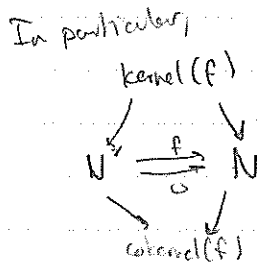 In particular,
kernel(f)
f
N' N
0
cokernel(f)